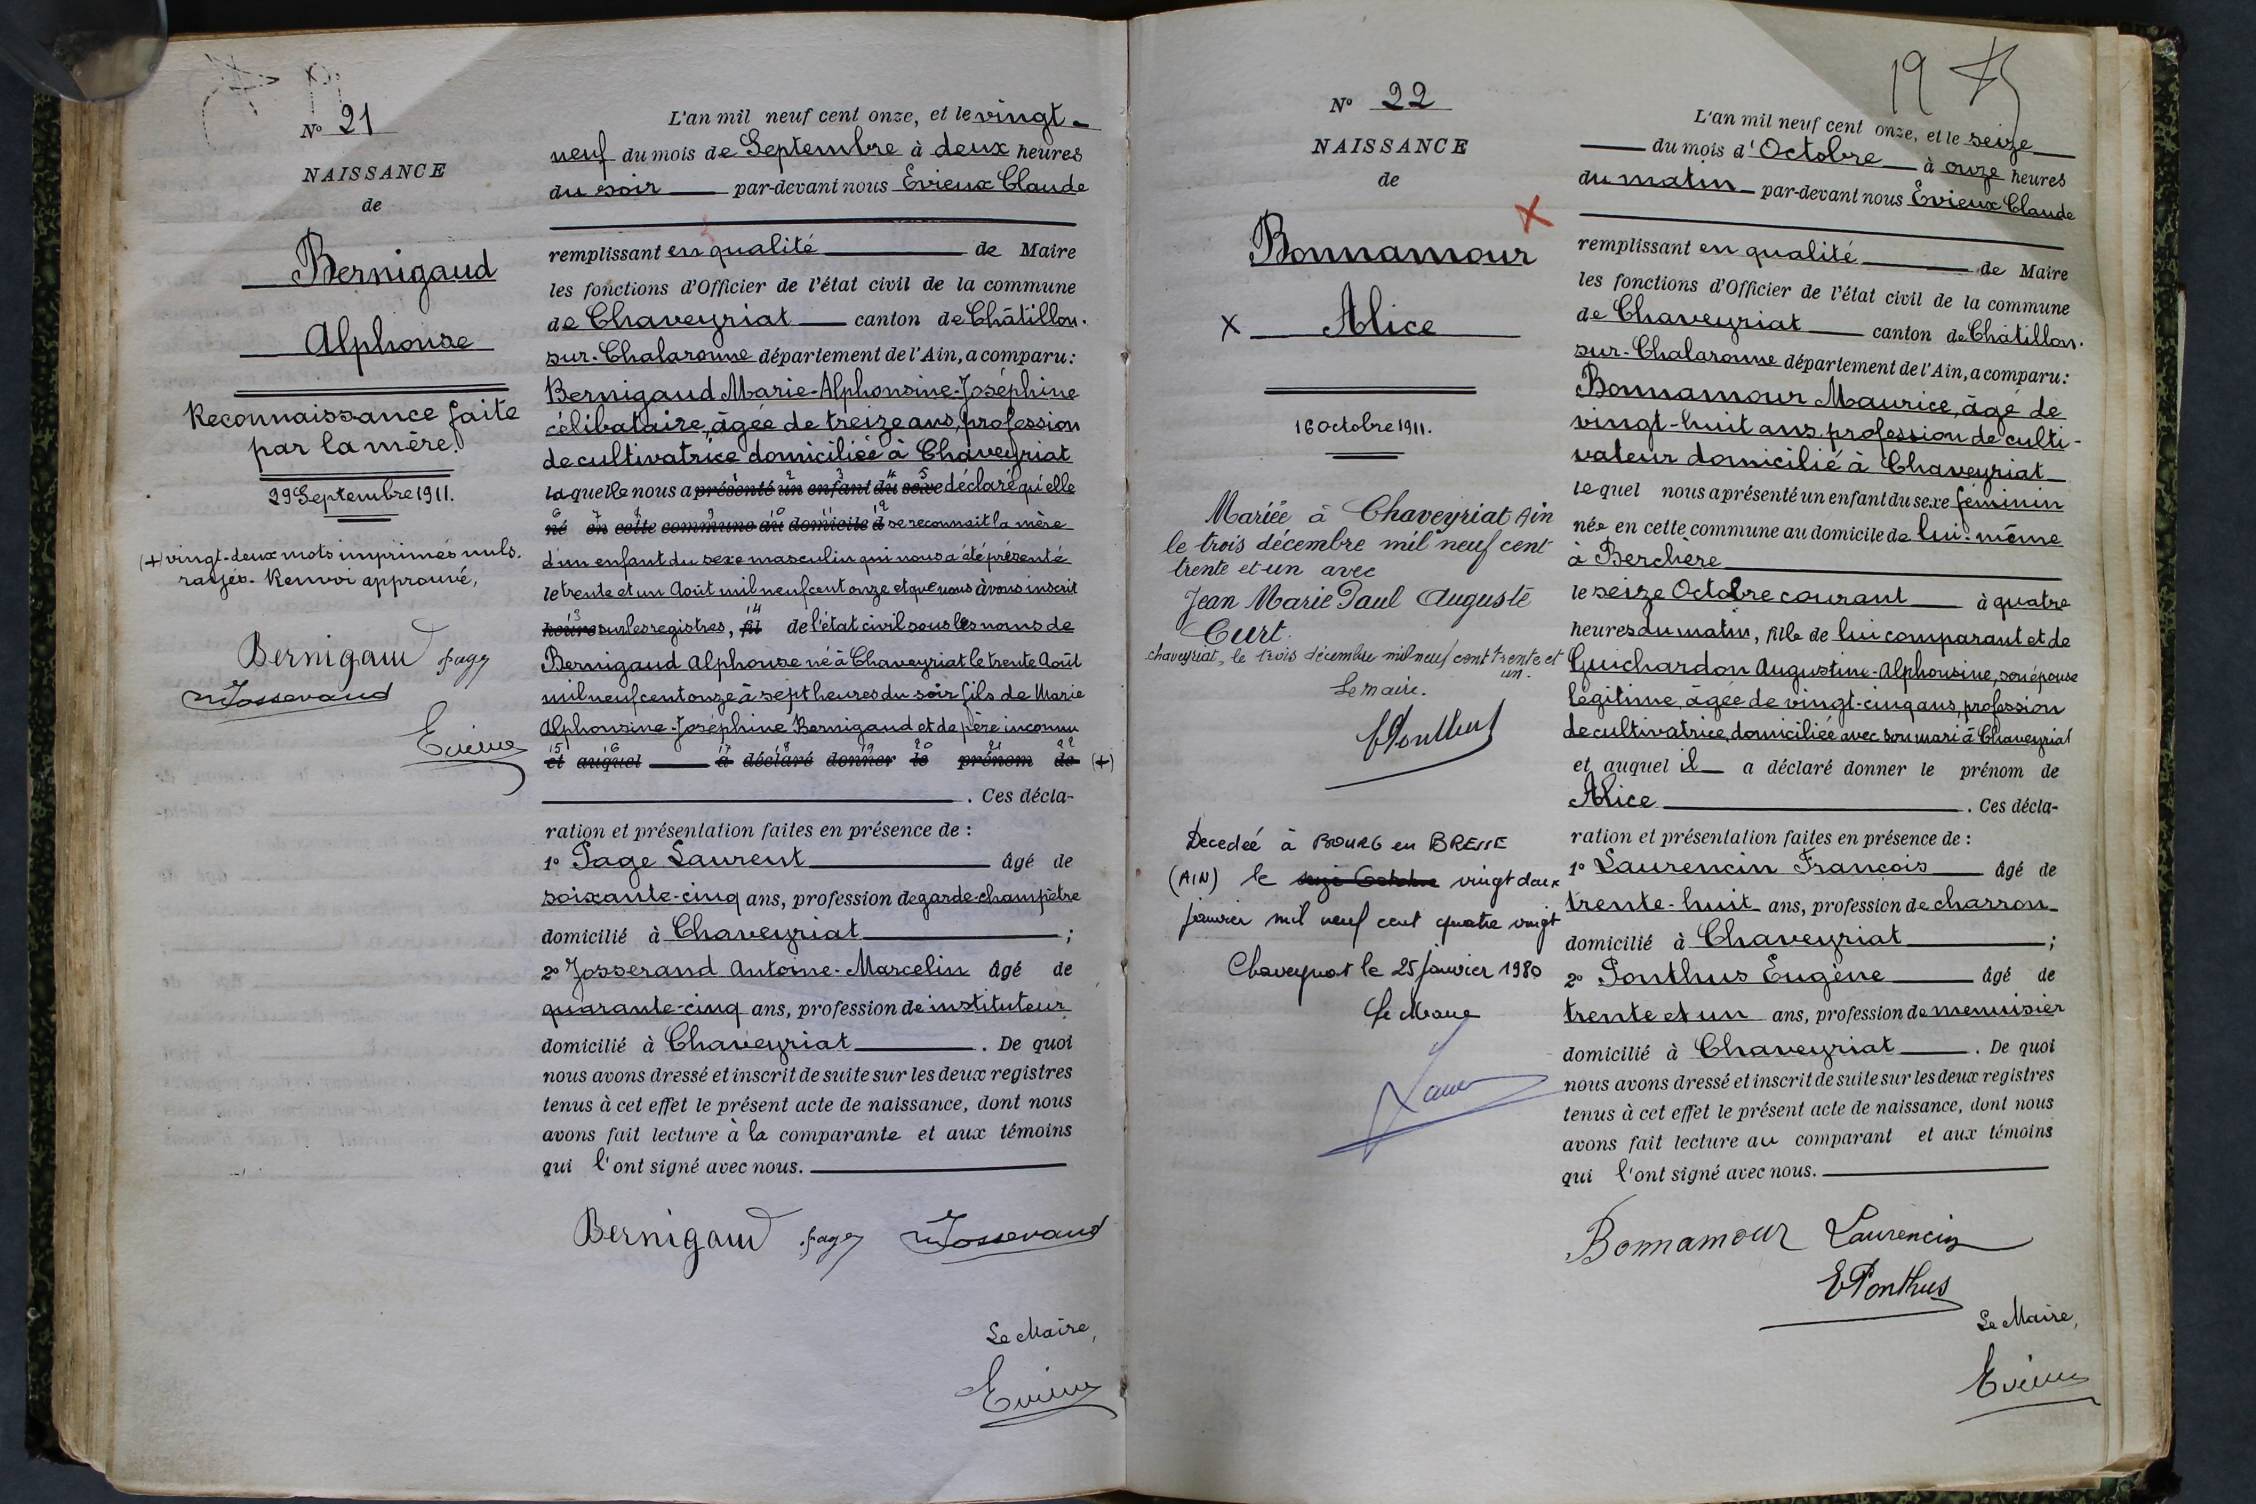 N° 21
NAISSANCE
de
Bernigaud
Alphonse
Reconnaissance faite
par la mère.
29 Septembre 1911.
(+) vingt-deux mots imprimés nuls.
rayés. Renvoi approuvé,
Bernigaud Page
Josserand
Evieux
L'an mil neuf cent onze, et le vingt-
neuf du mois de Septembre à deux heures
du soir par-devant nous Evieux Claude
remplissant en qualité de Maire
les fonctions d'Officier de l'état civil de la commune
de Chaveyriat canton de Châtillon-
sur-Chalaronne département de l'Ain, a comparu :
Bernigaud Marie-Alphonsine-Joséphine
célibataire, âgée de treize ans, profession
de cultivatrice domiciliée à Chaveyriat
laquelle nous a présenté un enfant du sexe déclaré qu'elle
né en cette commune au domicile d se reconnait la mère
d'un enfant du sexe masculin qui nous a été présenté
le trente et un Août mil neuf cent onze et que nous avons inscrit
heures sur les registres, fil de l'état civil sous les noms de
Bernigaud Alphonse né à Chaveyriat le trente Août
mil neuf cent onze à sept heures du soir fils de Marie
Alphonsine-Joséphine Bernigaud et de père inconnu
et auquel a déclaré donner le prénom de (+)
. Ces décla-
ration et présentation faites en présence de :
1° Page Laurent âgé de
soixante-cinq ans, profession de garde-champêtre
domicilié à Chaveyriat ;
2° Josserand Antoine-Marcelin âgé de
quarante-cinq ans, profession de instituteur
domicilié à Chaveyriat . De quoi
nous avons dressé et inscrit de suite sur les deux registres
tenus à cet effet le présent acte de naissance, dont nous
avons fait lecture à la comparante et aux témoins
qui l'ont signé avec nous.
Bernigaud Page Josserand
Le Maire,
Evieux
19
N° 22
NAISSANCE
de
Bonnamour
X Alice
16 Octobre 1911.
Mariée à Chaveyriat Ain
le trois décembre mil neuf cent
trente et un avec
Jean Marie Paul Auguste
Curt.
chaveyriat, le trois décembre mil neuf cent trente et
un.
Le maire.
EPonthus
Decedée à BOURG en BRESSE
(AIN) le seize Octobre vingt deux
janvier mil neuf cent quatre vingt
Chaveyriat le 25 janvier 1980
Le Maire
L'an mil neuf cent onze, et le seize
du mois d'Octobre à onze heures
du matin par-devant nous Evieux Claude
remplissant en qualité de Maire
les fonctions d'Officier de l'état civil de la commune
de Chaveyriat canton de Châtillon-
sur-Chalaronne département de l'Ain, a comparu :
Bonnamour Maurice, âgé de
vingt-huit ans, profession de culti-
vateur domicilié à Chaveyriat
lequel nous a présenté un enfant du sexe féminin
née en cette commune au domicile de lui-même
à Berchère
le seize Octobre courant à quatre
heures du matin, fille de lui comparant et de
Guichardon Augustine-Alphonsine, son épouse
légitime, âgée de vingt-cinq ans, profession
de cultivatrice, domiciliée avec son mari à Chaveyriat
et auquel il a déclaré donner le prénom de
Alice . Ces décla-
ration et présentation faites en présence de :
1° Laurencin François âgé de
trente-huit ans, profession de charron
domicilié à Chaveyriat ;
2° Ponthus Eugène âgé de
trente et un ans, profession de menuisier
domicilié à Chaveyriat . De quoi
nous avons dressé et inscrit de suite sur les deux registres
tenus à cet effet le présent acte de naissance, dont nous
avons fait lecture au comparant et aux témoins
qui l'ont signé avec nous.
Bonnamour Laurencin
EPonthus
Le Maire,
Evieux